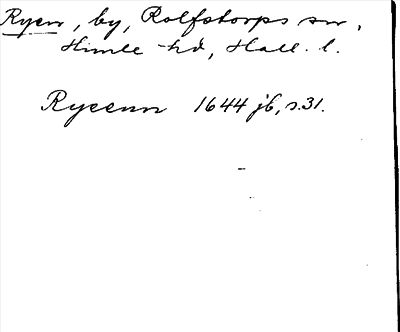 Ryen, by, Rolfstorps sn,
Himle hd, Hall. l.
Ryeenn 1644 jb, s.31.